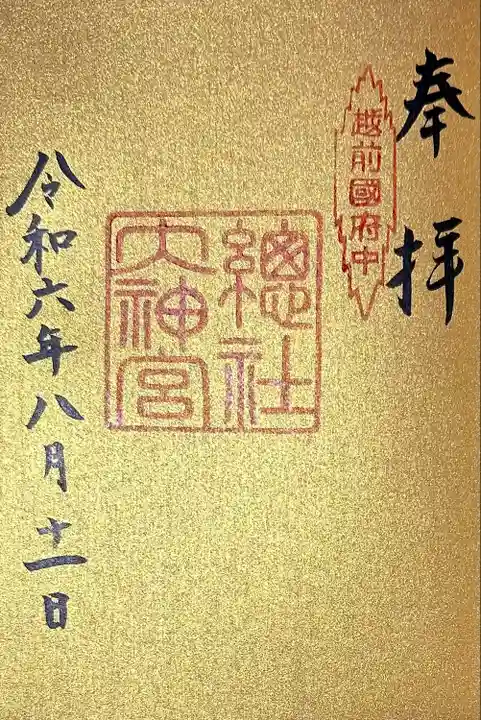 奉拝
越前國府中
總社
大神宮
令和六年八月十一日